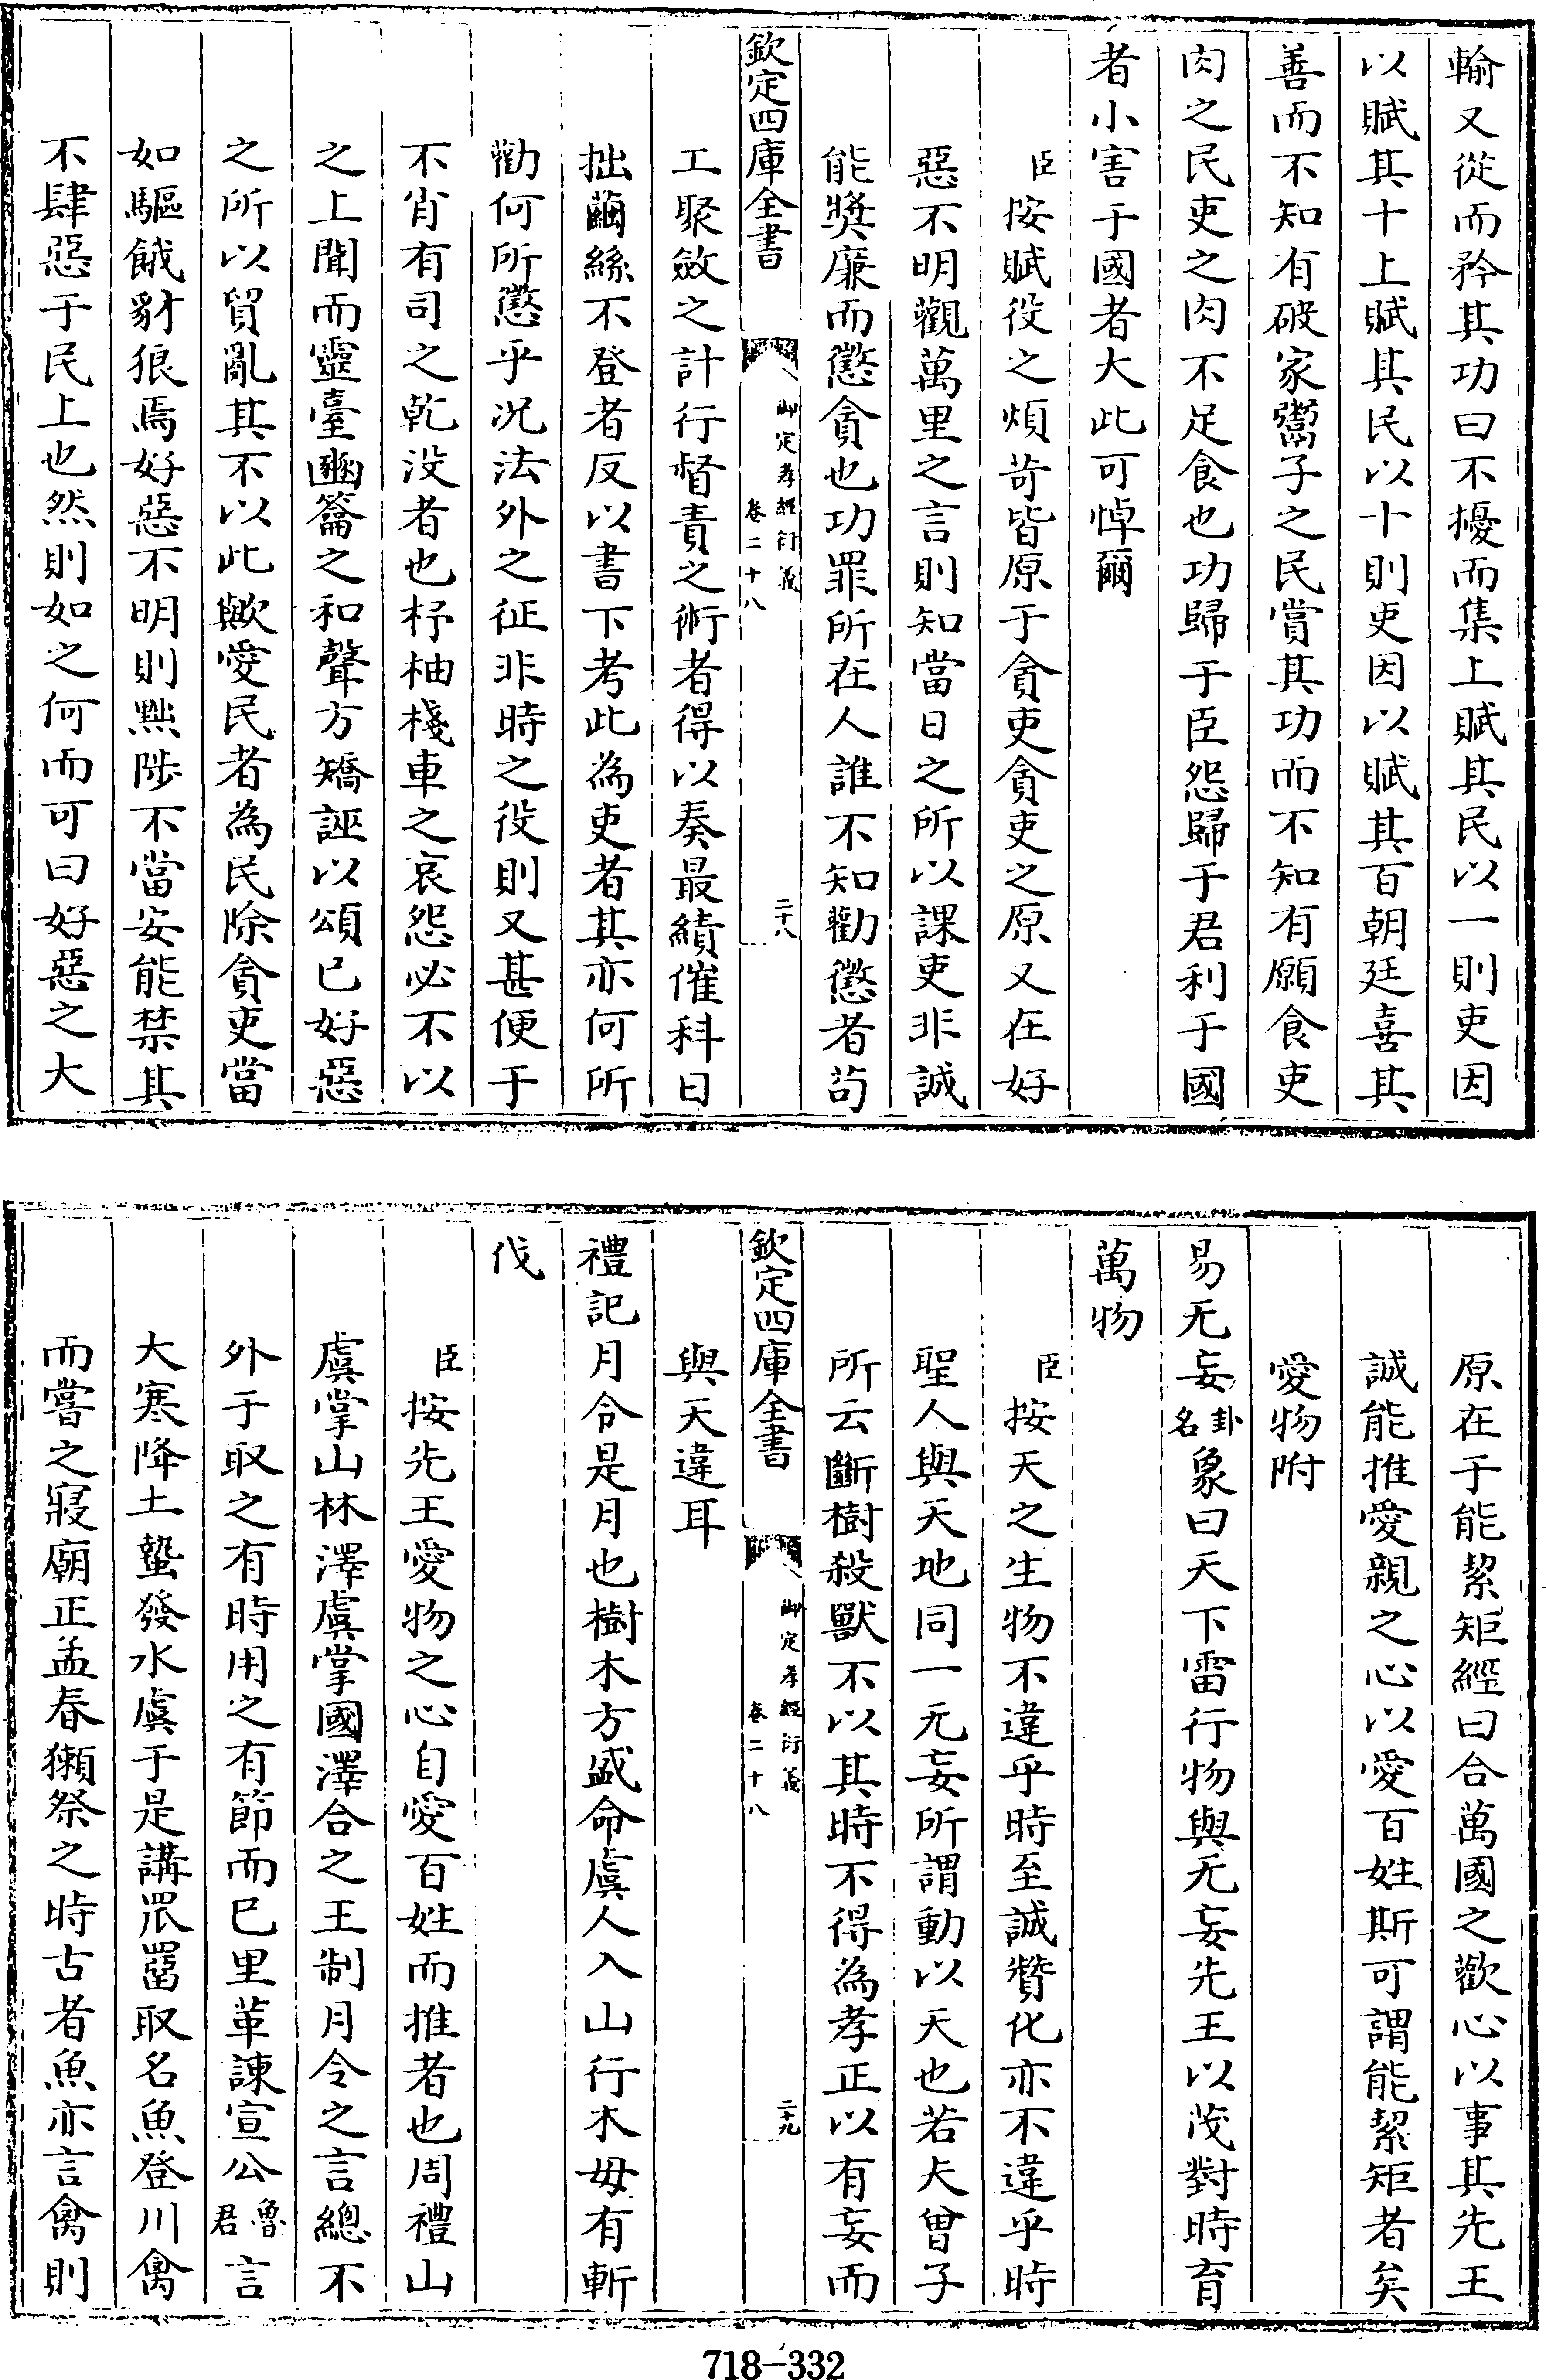 輸又從而矜其功曰不擾而集上賦其民以一則吏因
以賦其十上賦其民以十則吏因以賦其百朝廷喜其
善而不知有破家鬻子之民賞其功而不知有願食吏
肉之民吏之肉不足食也功歸于臣怨歸于君利于國
者小害于國者大此可悼爾
臣按賦役之煩苛皆原于貪吏貪吏之原又在好
惡不明觀萬里之言則知當日之所以課吏非誠
能獎廉而懲貪也功罪所在人誰不知勸懲者苟
欽定四庫全書 御定孝經衍義 卷二十八 二十八
工聚斂之計行督責之術者得以奏最績催科日
拙繭絲不登者反以書下考此為吏者其亦何所
勸何所懲乎况法外之征非時之役則又甚便于
不肖有司之乾没者也杼柚棧車之哀怨必不以
之上聞而靈臺豳籥之和聲方矯誣以頌已好惡
之所以貿亂其不以此歟愛民者為民除貪吏當
如驅餓豺狼焉好惡不明則黜陟不當安能禁其
不肆惡于民上也然則如之何而可曰好惡之大
原在于能絜矩經曰合萬國之歡心以事其先王
誠能推愛親之心以愛百姓斯可謂能絜矩者矣
愛物附
易无妄卦名象曰天下雷行物與无妄先王以茂對時育
萬物
臣按天之生物不違乎時至誠贊化亦不違乎時
聖人與天地同一无妄所謂動以天也若夫曾子
所云斷樹殺獸不以其時不得為孝正以有妄而
欽定四庫全書 御定孝經衍義 卷二十八 二十九
與天違耳
禮記月令是月也樹木方盛命虞人入山行木毋有斬
伐
臣按先王愛物之心自愛百姓而推者也周禮山
虞掌山林澤虞掌國澤合之王制月令之言總不
外于取之有時用之有節而巳里革諫宣公魯君言
大寒降土蟄發水虞于是講罛罶取名魚登川禽
而嘗之寢廟正孟春獺祭之時古者魚亦言禽則